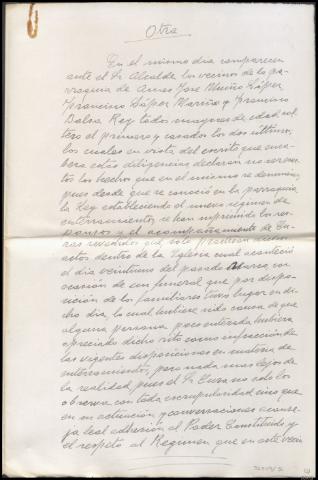 Otra
En el mismo dia comparecen
ante el Sr Alcalde los vecinos de la pa-
rroquia de Jose Muiño López
Francisco López Marriño y Francisco
Balsa Rey todos mayores de edad sol-
tero el primero y casados los dos ultimos,
los cuales en vista del escrito que enca-
beza estas diligencias declaran no ser cier-
tos los hechos que en el mismo se denuncian,
pues desde que se conoció en la parroquia
la Ley estableciendo el nuevo régimen de
enterramientos, se han suprimido los res-
ponsos y el acompañamiento de Cu-
ras revestidos que solo practican dichos
actos dentro de la Iglesia cual aconteció
el dia veintiuno del pasado Marzo con
ocasión de un funeral que por dispo-
sición de los familiares tuvo lugar en di-
cho dia, lo cual hubiese sido causa de que
alguna persona poco enterada hubiera
apreciado dicho rito como infracción de
las vigentes disposiciones en materia de
enterramientos, pero nada mas lejos de
la realidad pues el Sr Cura no solo las
observa con toda escrupulosidad sino que
en su actuación y conversaciones aconse-
ja leal adhesión al Poder Constituido y
el respeto al Regimen que en este vecin